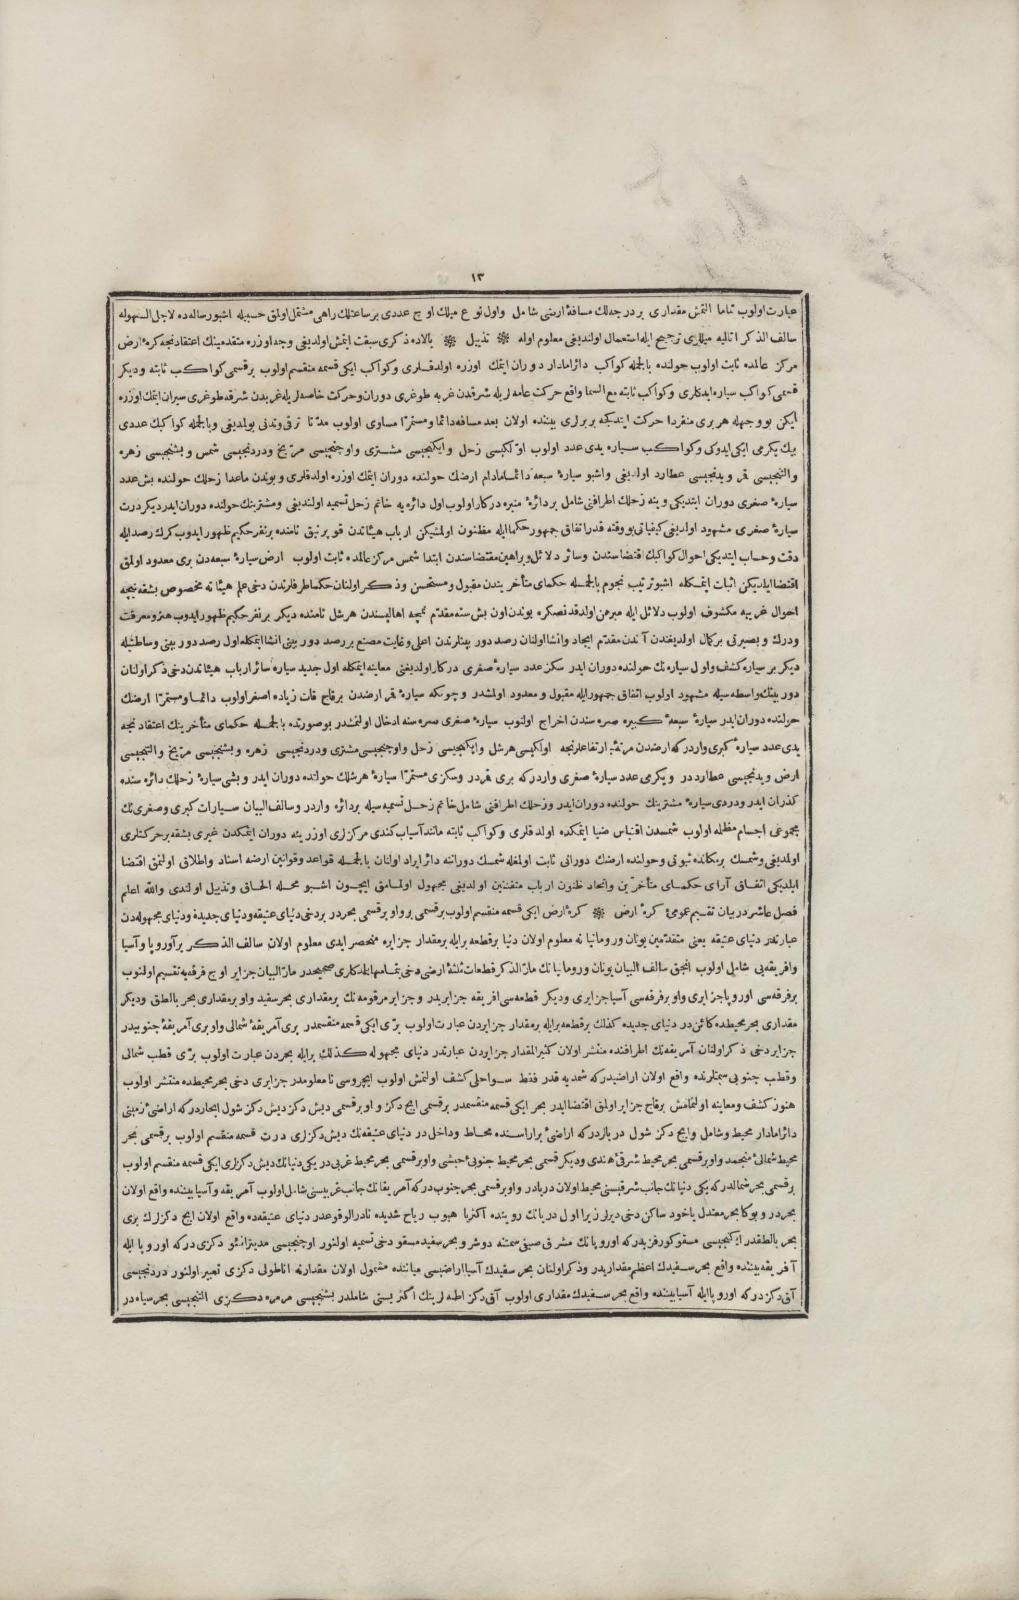 ١٣
عبارت اولوب تماما التمش مقداری بر درجه‌لك مسافۀ ارضی شامل واول نوع میلك اوچ عددی بر ساعتلك راهی مشتمل اولمق حسبیله اشبو رساله‌ده لاجل السهوله
سالف الذكر ایتالیه میللری ترجیح ایله استعمال اولندیغی معلوم اوله ❊ تذییل ❊ بالاده ذكری سبقت ایتمش اولدیغی وجه اوزره متقدمینك اعتقادنجه كرۀ ارض
مركز عالمده ثابت اولوب حولنده بالجمله كواكب دائرامادار دوران ایتمك اوزره اولدقلری وكواكب ایكی قسمه منقسم اولوب بر قسمی كواكب ثابته ودیكر
قسمی كواكب سیاره ایدكلری وكواكب ثابته مع السما واقع حركت عامه‌لریله شرقدن غربه طوغری دوران وحركت خاصه‌لریله غربدن شرقه طوغری سیران ایتمك اوزره
ایكن بو وجهله هر بری منفردا حركت ایتدكجه بربرلری بیننده اولان بعد مسافه دائما ومستمرًا مساوی اولوب مدتا ترقی وتدنی بولمدیغی وبالجمله كواكبك عددی
بیك یكرمی ایكی ایدوكی وكواكب سیاره یدی عدد اولوب اوّلكیسی زحل وایكنجیسی مشتری واوچنجیسی مرّیخ ودردنجیسی شمس وبشنجیسی زهره
والتنجیسی قمر ویدنجیسی عطارد اولدیغی واشبو سیارۀ سبعه دائما مادام ارضك حولنده دوران ایتمك اوزره اولدقلری وبوندن ماعدا زحلك حولنده بش عدد
سیارۀ صغری دوران ایتدیكی وینه زحلك اطرافنی شامل بر دائرۀ منیره دركار اولوب اول دائره‌یه خاتم زحل تسمیه اولندیغی ومشترینك حولنده دوران ایدر دیكر درت
سیارۀ صغری مشهود اولدیغی كیفیاتی بو وقته قدر اتفاق جمهور حكما ایله مظنون اولمشیكن ارباب هیئاتدن قوپرنیق نامنده بر نفر حكیم ظهور ایدوب كرك رصد ایله
دقت وحساب ایتدیكی احوال كواكبك اقتضاسندن وسائر دلائل وبراهین مقتضاسندن ابتدا شمس مركز عالمده ثابت اولوب ارض سیارۀ سبعه‌دن بری معدود اولمق
اقتضا ایلدیكن اثبات ایتمكله اشبو ترتیب نجوم بالجمله حكمای متأخریندن مقبول ومستحسن وذكر اولنان حكما طرفلرندن دخی علم هیئاته مخصوص بشقه نیجه
احوال غریبه مكشوف اولوب دلائل ایله مبرهن اولدقدنصكره بوندن اون بش سنه مقدم نمچه اهالیسندن هرشل نامنده دیكر بر نفر حكیم ظهور ایدوب هنر ومعرفت
ودرك وبصیرتی بركمال اولدیغندن آندن مقدم ایجاد وانشا اولنان رصد دوربینلرندن اعلی وغایت مصنع بر رصد دوربینی انشا ایتمكله اول رصد دوربینی وساطتیله
دیكر بر سیاره كشف واول سیاره‌نك حولنده دوران ایدر سكز عدد سیارۀ صغری دركار اولدیغنی معاینه ایتمكله اول جدید سیاره سائر ارباب هیئاتدن دخی ذكر اولنان
دوربینك واسطه‌سیله مشهود اولوب اتفاق جمهور ایله مقبول ومعدود اولمشدر وچونكه سیارۀ قمر ارضدن برقاچ قات زیاده اصغر اولوب دائما ومستمرًا ارضك
حولنده دوران ایدر سیارۀ سبعۀ كبیره صره‌سندن اخراج اولنوب سیارۀ صغری صره‌سنه ادخال اولنمشدر بو صورتده بالجمله حكمای متأخرینك اعتقادنجه
یدی عدد سیارۀ كبری واردر كه ارضدن مرتبۀ ارتفاعلرنجه اولكیسی هرشل وایكنجیسی زحل واوچنجیسی مشتری ودردنجیسی زهره وبشنجیسی مرّیخ والتنجیسی
ارض ویدنجیسی عطارددر ویكرمی عدد سیارۀ صغری واردر كه بری قمردر وسكزی مستمرًا سیارۀ هرشلك حولنده دوران ایدر وبشی سیارۀ زحلك دائره‌سنده
كذران ایدر ودردی سیارۀ مشترینك حولنده دوران ایدر وزحلك اطرافنی شامل خاتم زحل تسمیه‌سیله بر دائره واردر وسالف البیان سیارات كبری وصغری‌نك
مجموعی اجسام مظلمه اولوب شمسدن اقتباس ضیا ایتمكده اولدقلری وكواكب ثابته مانند آسیاب كندی مركزلری اوزرینه دوران ایتمكدن غیری بشقه بر حركتلری
اولمدیغی وشمسك بر مكانده ثبوتی وحولنده ارضك دورانی ثابت اولمغله شمسك دورانه دائر ایراد اولنان بالجمله قواعد وقوانین ارضه اسناد واطلاق اولنمق اقتضا
ایلدیكی اتفاق آرای حكمای متأخرین واتحاد ظنون ارباب متفننین اولدیغی مجهول اولمامق ایچون اشبو محله الحاق وتذییل اولندی والله اعلم
فصل عاشر در بیان تقسیم عمومئ كرۀ ارض ❊ كرۀ ارض ایكی قسمه منقسم اولوب بر قسمی بر و اوبر قسمی بحردر بر دخی دنیای عتیقه ودنیای جدیده ودنیای مجهوله‌دن
عبارتدر دنیای عتیقه یعنی متقدمین یونان ورومانیانه معلوم اولان دنیا بر قطعه بر ایله بر مقدار جزایره منحصر ایدی معلوم اولان سالف الذكر بر آوروپا وآسیا
وافریقه‌یی شامل اولوب انجق سالف البیان یونان ورومانیانك مارّ الذكر قطعات ثلثۀ ارضی دخی بتمامها بلدكلری صحیحدر مارّ البیان جزایر اوچ فرقه‌یه تقسیم اولنوب
بر فرقه‌سی اوروپا جزایری واوبر فرقه‌سی آسیا جزایری ودیكر قطعه‌سی افریقه جزایریدر وجزایر مرقومه‌نك بر مقداری بحر سفید واوبر مقداری بحر بالطق ودیكر
مقداری بحر محیطده كائندر دنیای جدیده كذلك بر قطعه بر ایله بر مقدار جزایردن عبارت اولوب برّی ایكی قسمه منقسمدر بری آمریقۀ شمالی واوبری آمریقۀ جنوبیدر
جزایر دخی ذكر اولنان آمریقه‌نك اطرافنده منتشر اولان كثیر المقدار جزایردن عبارتدر دنیای مجهوله كذلك بر ایله بحردن عبارت اولوب برّی قطب شمالی
وقطب جنوبی سمتلرنده واقع اولان اراضیدر كه شمدیه قدر فقط سواحلی كشف اولنمش اولوب ایچروسی نامعلومدر جزایری دخی بحر محیطده منتشر اولوب
هنوز كشف ومعاینه اولنمامش برقاچ جزایر اولمق اقتضا ایدر بحر ایكی قسمه منقسمدر بر قسمی ایچ دكز واوبر قسمی دیش دكز دیش دكز شول ابحاردر كه اراضئ زمینی
دائرامادار محیط وشامل وایچ دكز شول دریالردر كه اراضئ برار اسنده محاط وداخل در دنیای عتیقه‌نك دیش دكزلری درت قسمه منقسم اولوب بر قسمی بحر
محیط شمالئ منجمد واوبر قسمی بحر محیط شرقئ هندی ودیكر قسمی بحر محیط جنوبئ حبشی واوبر قسمی بحر محیط غربی در یكی دنیانك دیش دكزلری ایكی قسمه منقسم اولوب
بر قسمی بحر شمالدر كه یكی دنیانك جانب شرقیسنی محیط اولان دریادر واوبر قسمی بحر جنوب در كه آمریقانك جانب غربیسنی شامل اولوب آمریقه وآسیا بیننده واقع اولان
بحردر وبوكا بحر معتدل یاخود ساكن دخی دیرلر زیرا اول دریانك روینده اكثریا هبوب ریاح شدیده نادر الوقوعدر دنیای عتیقه‌ده واقع اولان ایچ دكزلرك بری
بحر بالطقدر ایكنجیسی مسقو كورفزیدر كه اوروپانك مشرق صیفی سمتنه دوشر وبحر سفید مسقو دخی تسمیه اولنور اوچنجیسی مدیترانئو دكزی در كه اوروپا ایله
آفریقه بیننده واقع بحر سفیدك اعظم مقداریدر وذكر اولنان بحر سفیدك آسیا اراضیسی میاننده مشمول اولان مقدارنه اناطولی دكزی تعبیر اولنور دردنجیسی
آق دكزدر كه اوروپا ایله آسیا بیننده واقع بحر سفیدك مقداری اولوب آق دكز اطه‌لرینك اكثریسنی شاملدر بشنجیسی مرمره دكزی التنجیسی بحر سیاه در